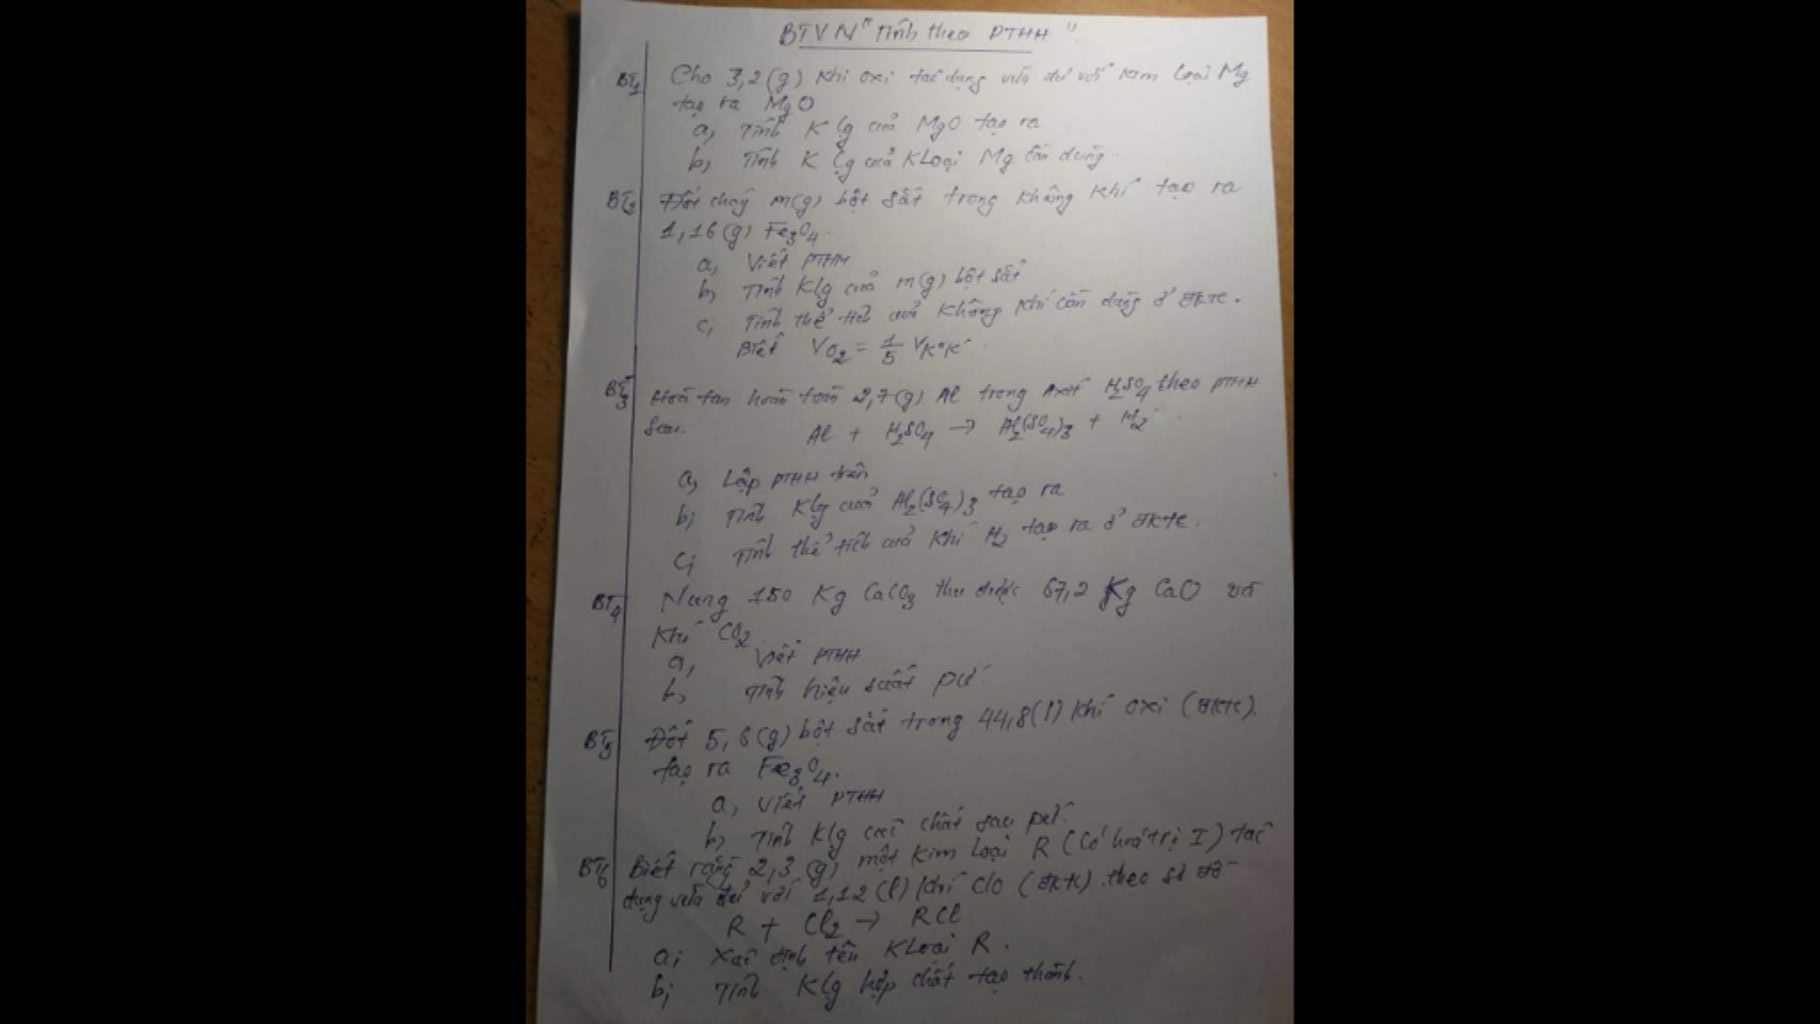 BTVN "Tính theo PTHH"
BT1 Cho 3,2(g) Khí oxi tác dụng vừa đủ với kim loại Mg
tạo ra MgO
a, Tính K lg của MgO tạo ra
b, Tính K lg của KLoại Mg cần dùng.
BT2 Đốt cháy m(g) bột sắt trong không khí tạo ra
1,16(g) Fe3O4.
a, Viết PTHH
b, Tính Klg của m(g) bột sắt
c, Tính thể tích của không khí cần dùng ở ĐKTC.
Biết VO2 = 1/5 VK°K.
BT3 Hoà tan hoàn toàn 2,7(g) Al trong Axit H2SO4 theo PTHH
sau. Al + H2SO4 → Al2(SO4)3 + H2
a, Lập PTHH trên
b, Tính Klg của Al2(SO4)3 tạo ra
c, Tính thể tích của khí H2 tạo ra ở ĐKTC.
BT4 Nung 150 Kg CaCO3 thu được 67,2 Kg CaO và
Khí CO2
a, Viết PTHH
b, Tính hiệu suất pư.
BT5 Đốt 5,6(g) bột sắt trong 44,8(l) khí oxi (ĐKTC).
tạo ra Fe3O4.
a, Viết PTHH
b, Tính Klg các chất sau pứ.
BT6 Biết rằng 2,3 (g) một Kim loại R (Có hoá trị I) tác
dụng vừa đủ với 1,12(l) khí clo (ĐKTC) theo sơ đồ
R + Cl2 → RCl
a, Xác định tên KLoại R.
b, Tính Klg hợp chất tạo thành.